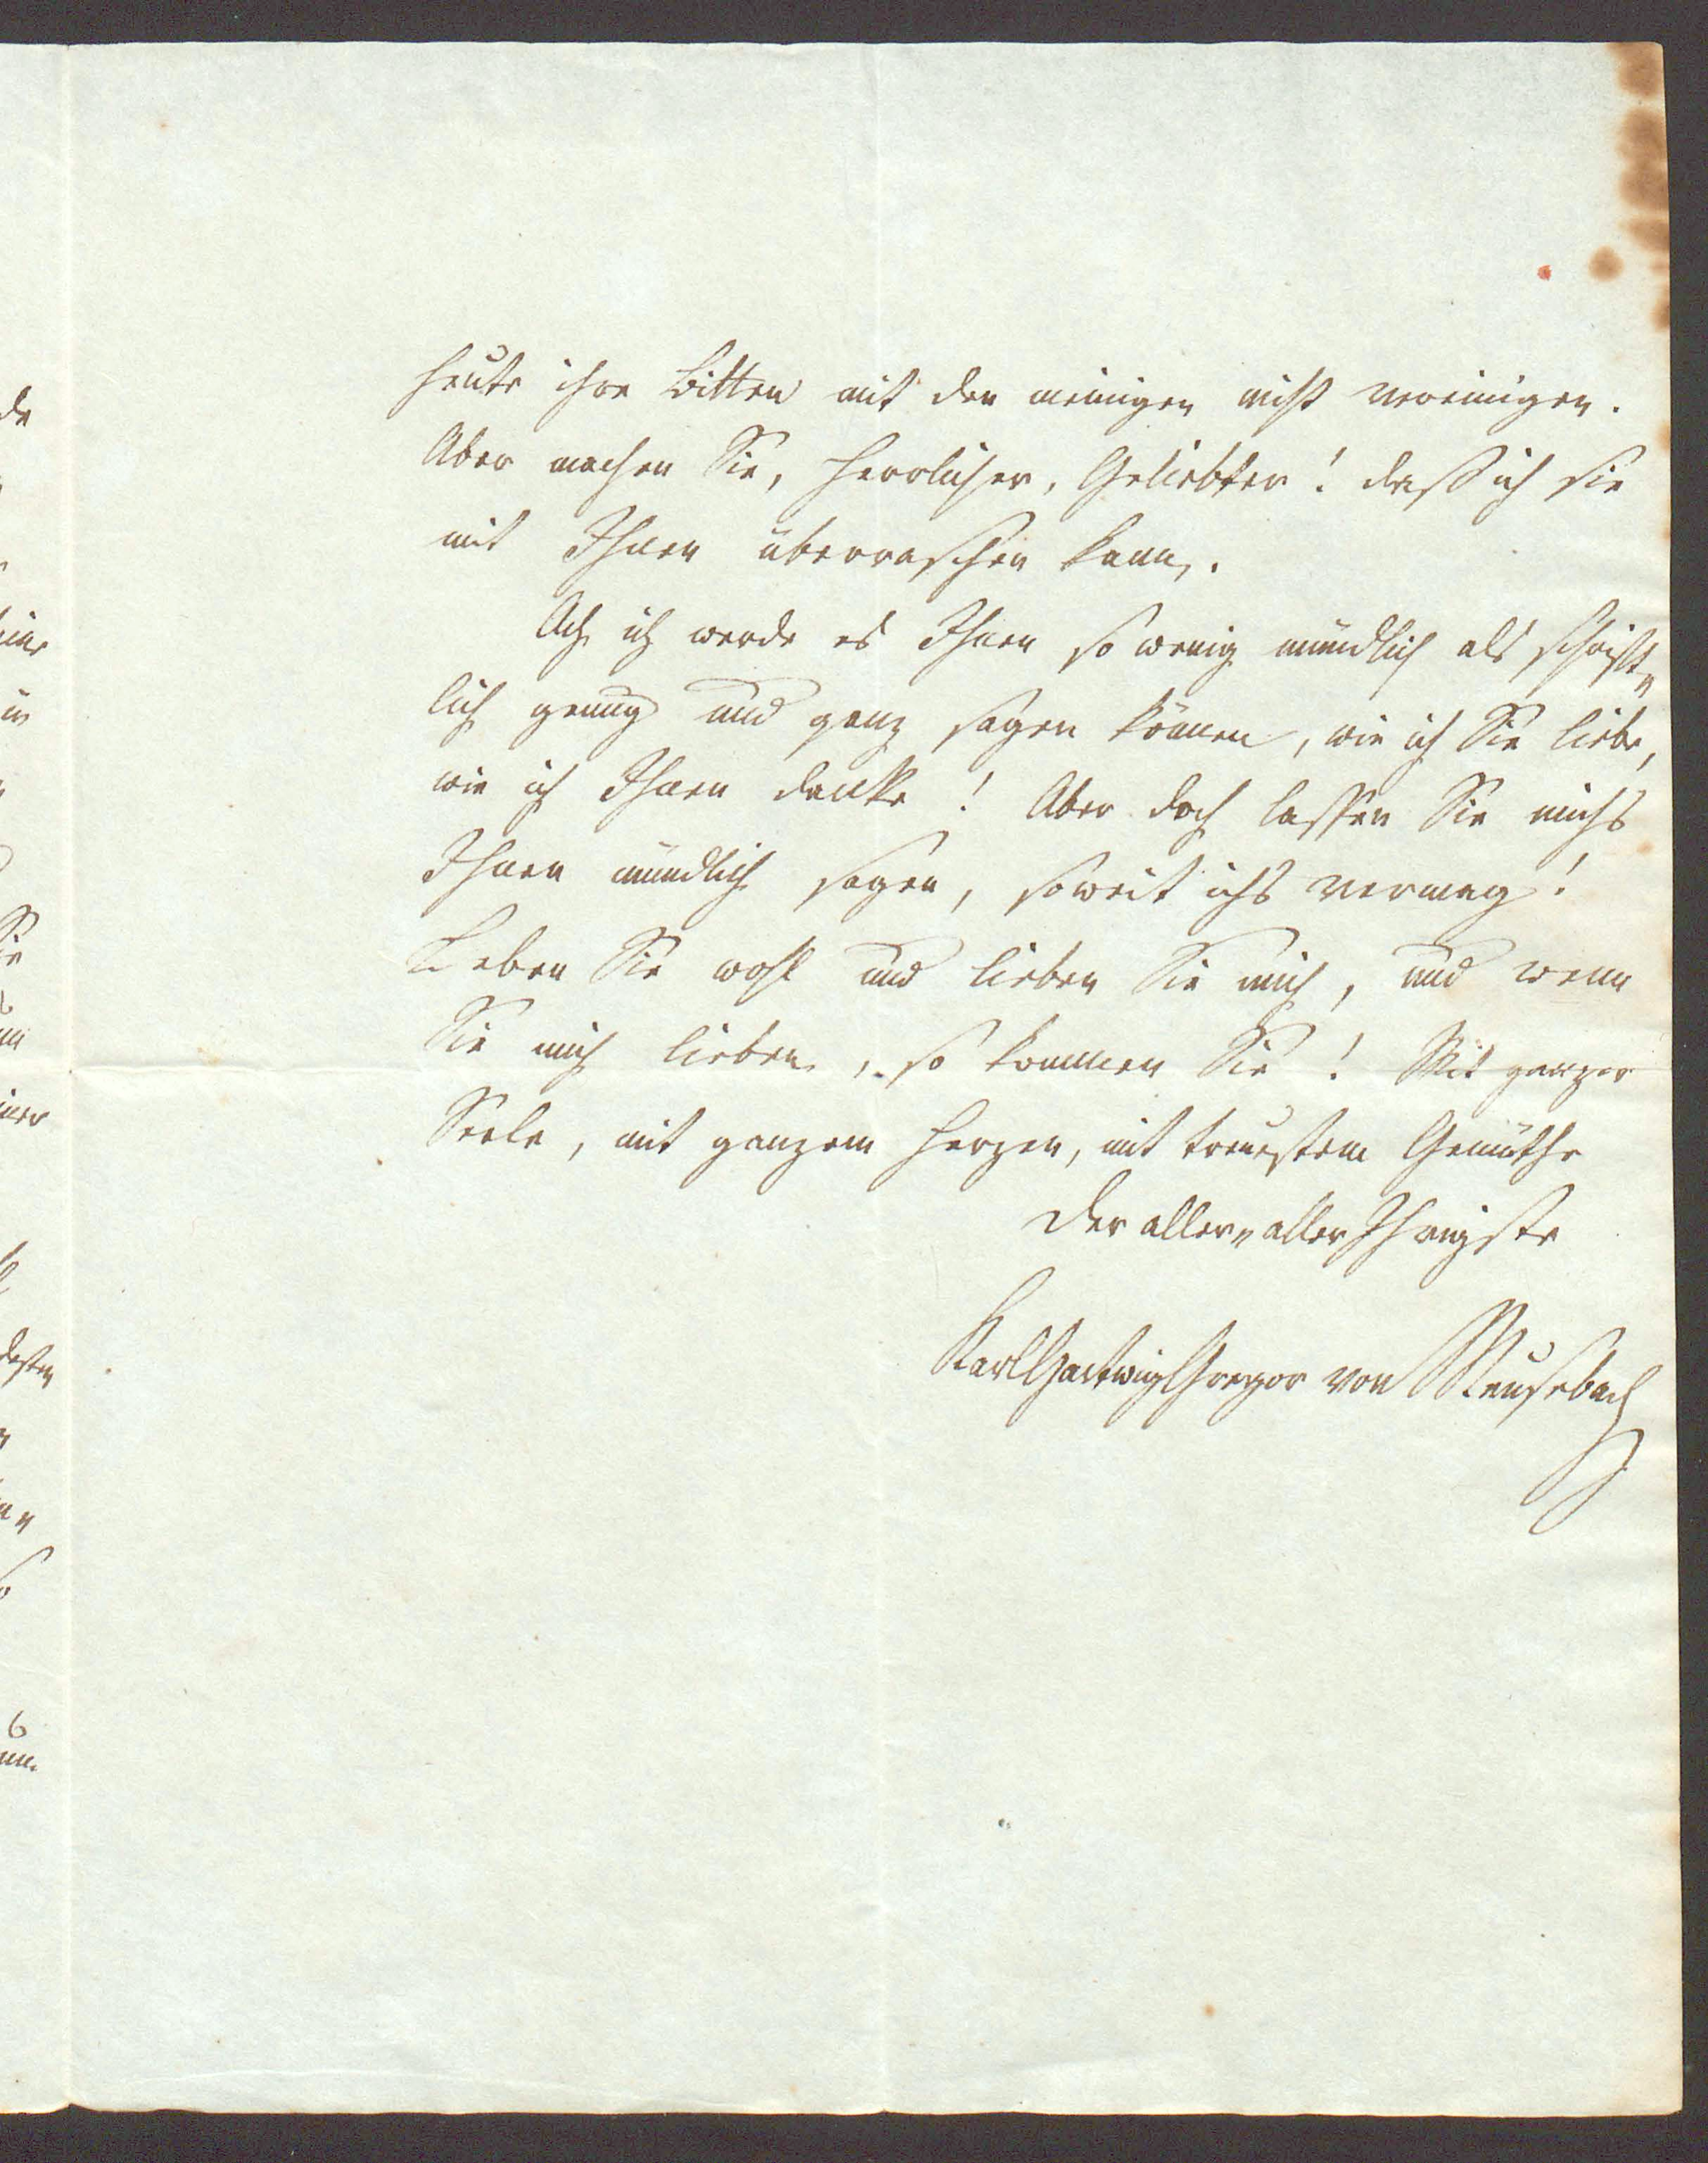 heute ihre Bitten mit den meinigen nicht vereinigen.
Aber machen Sie, Herrlicher, Geliebter! daß ich sie
mit Ihnen überraschen kann.
Ach ich werde es Ihnen so wenig mündlich als schrift„
lich genug und ganz sagen können, wie ich Sie liebe,
wie ich Ihnen danke! Aber doch lassen Sie michs
Ihnen mündlich sagen, soweit ichs vermag!
Leben Sie wohl und lieben Sie mich, und wenn
Sie mich lieben, so kommen Sie! Mit ganzer
Seele, mit ganzem Herzen, mit treuestem Gemüthe
der aller„aller Ihrigste
Karl Hartwig Gregor von Meusebach